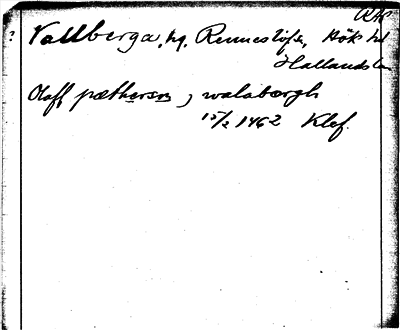 ? Vallberga, hg. Renneslöfs, Höks hd
Hallands län
Olaff pæthersøn j walabærgh
15/2 1462 Klef.